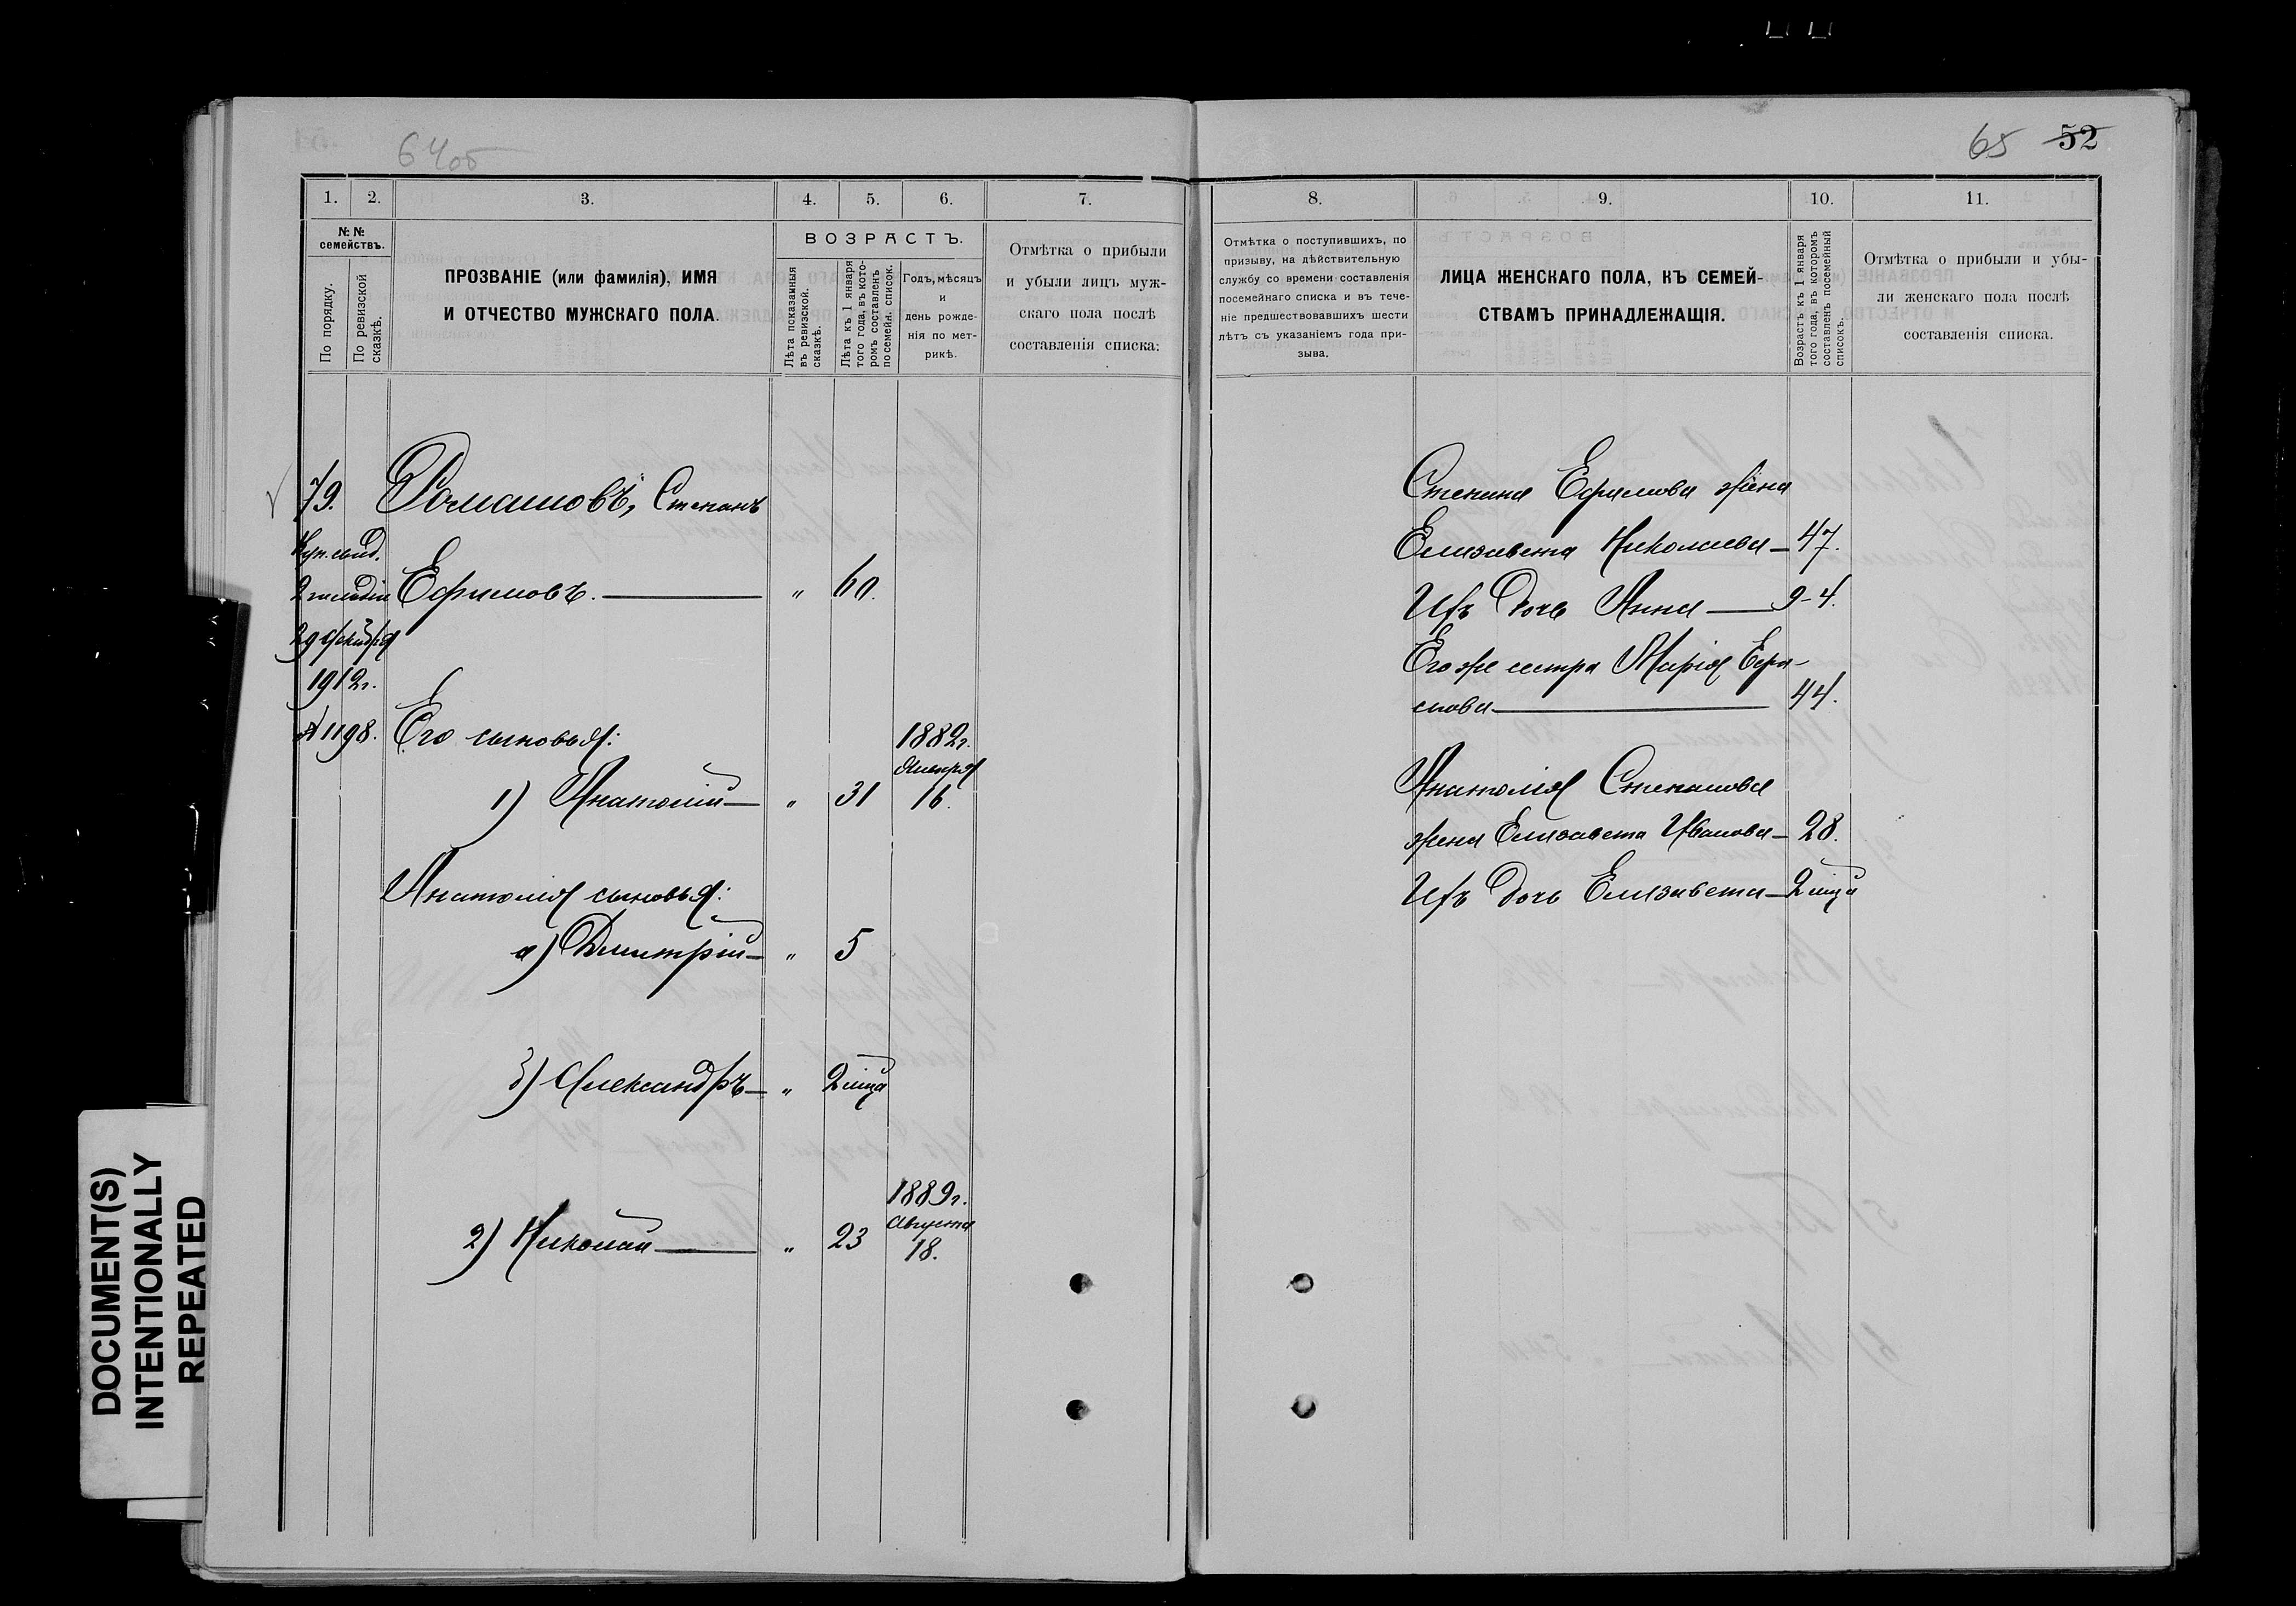 64об
65 52
1. 2. 3. 4. 5. 6. 7.
№ №
семействъ.
По порядку.
По ревизской
сказкѣ.
ПРОЗВАНІЕ (или фамилія), ИМЯ
И ОТЧЕСТВО МУЖСКАГО ПОЛА.
ВОЗРАСТЪ.
Лѣта показанныя
въ ревизской.
сказкѣ.
Лѣта къ 1 января
того года, въ кото-
ромъ составленъ
посемейн. список.
Годъ, мѣсяцъ
и
день рожде-
нія по мет-
рикѣ.
Отмѣтка о прибыли
и убыли лицъ муж-
скаго пола послѣ
составленія списка.
79. Романовъ, Степанъ
Куп. свид.
2 гильдіи Ефимовъ. — " 60.
29 декабря
1912 г.
№ 1198. Его сыновья: 1882 г.
Января
1) Анатолій — " 31 16.
Анатолія сыновья:
а) Дмитрій — " 5
б) Александръ — " 2 мца
1889 г.
Августа
2) Николай — " 23 18.
8. 9. 10. 11.
Отмѣтка о поступившихъ, по
призыву, на дѣйствительную
службу со времени составленія
посемейнаго списка и въ тече-
ніе предшествовавшихъ шести
лѣтъ съ указаніемъ года при-
зыва.
ЛИЦА ЖЕНСКАГО ПОЛА, КЪ СЕМЕЙ-
СТВАМЪ ПРИНАДЛЕЖАЩІЯ.
Возрастъ къ 1 января
того года, въ которомъ
составленъ посемейный
списокъ.
Отмѣтка о прибыли и убы-
ли женскаго пола послѣ
составленія списка.
Степана Ефимова жена
Елизавета Николаева — 47.
Ихъ дочь Анна — 9-4.
Его же сестра Марія Ефи-
мова — 44.
Анатолія Степанова
жена Елизавета Иванова — 28.
Ихъ дочь Елизавета — 2 мца
DOCUMENT(S)
INTENTIONALLY
REPEATED